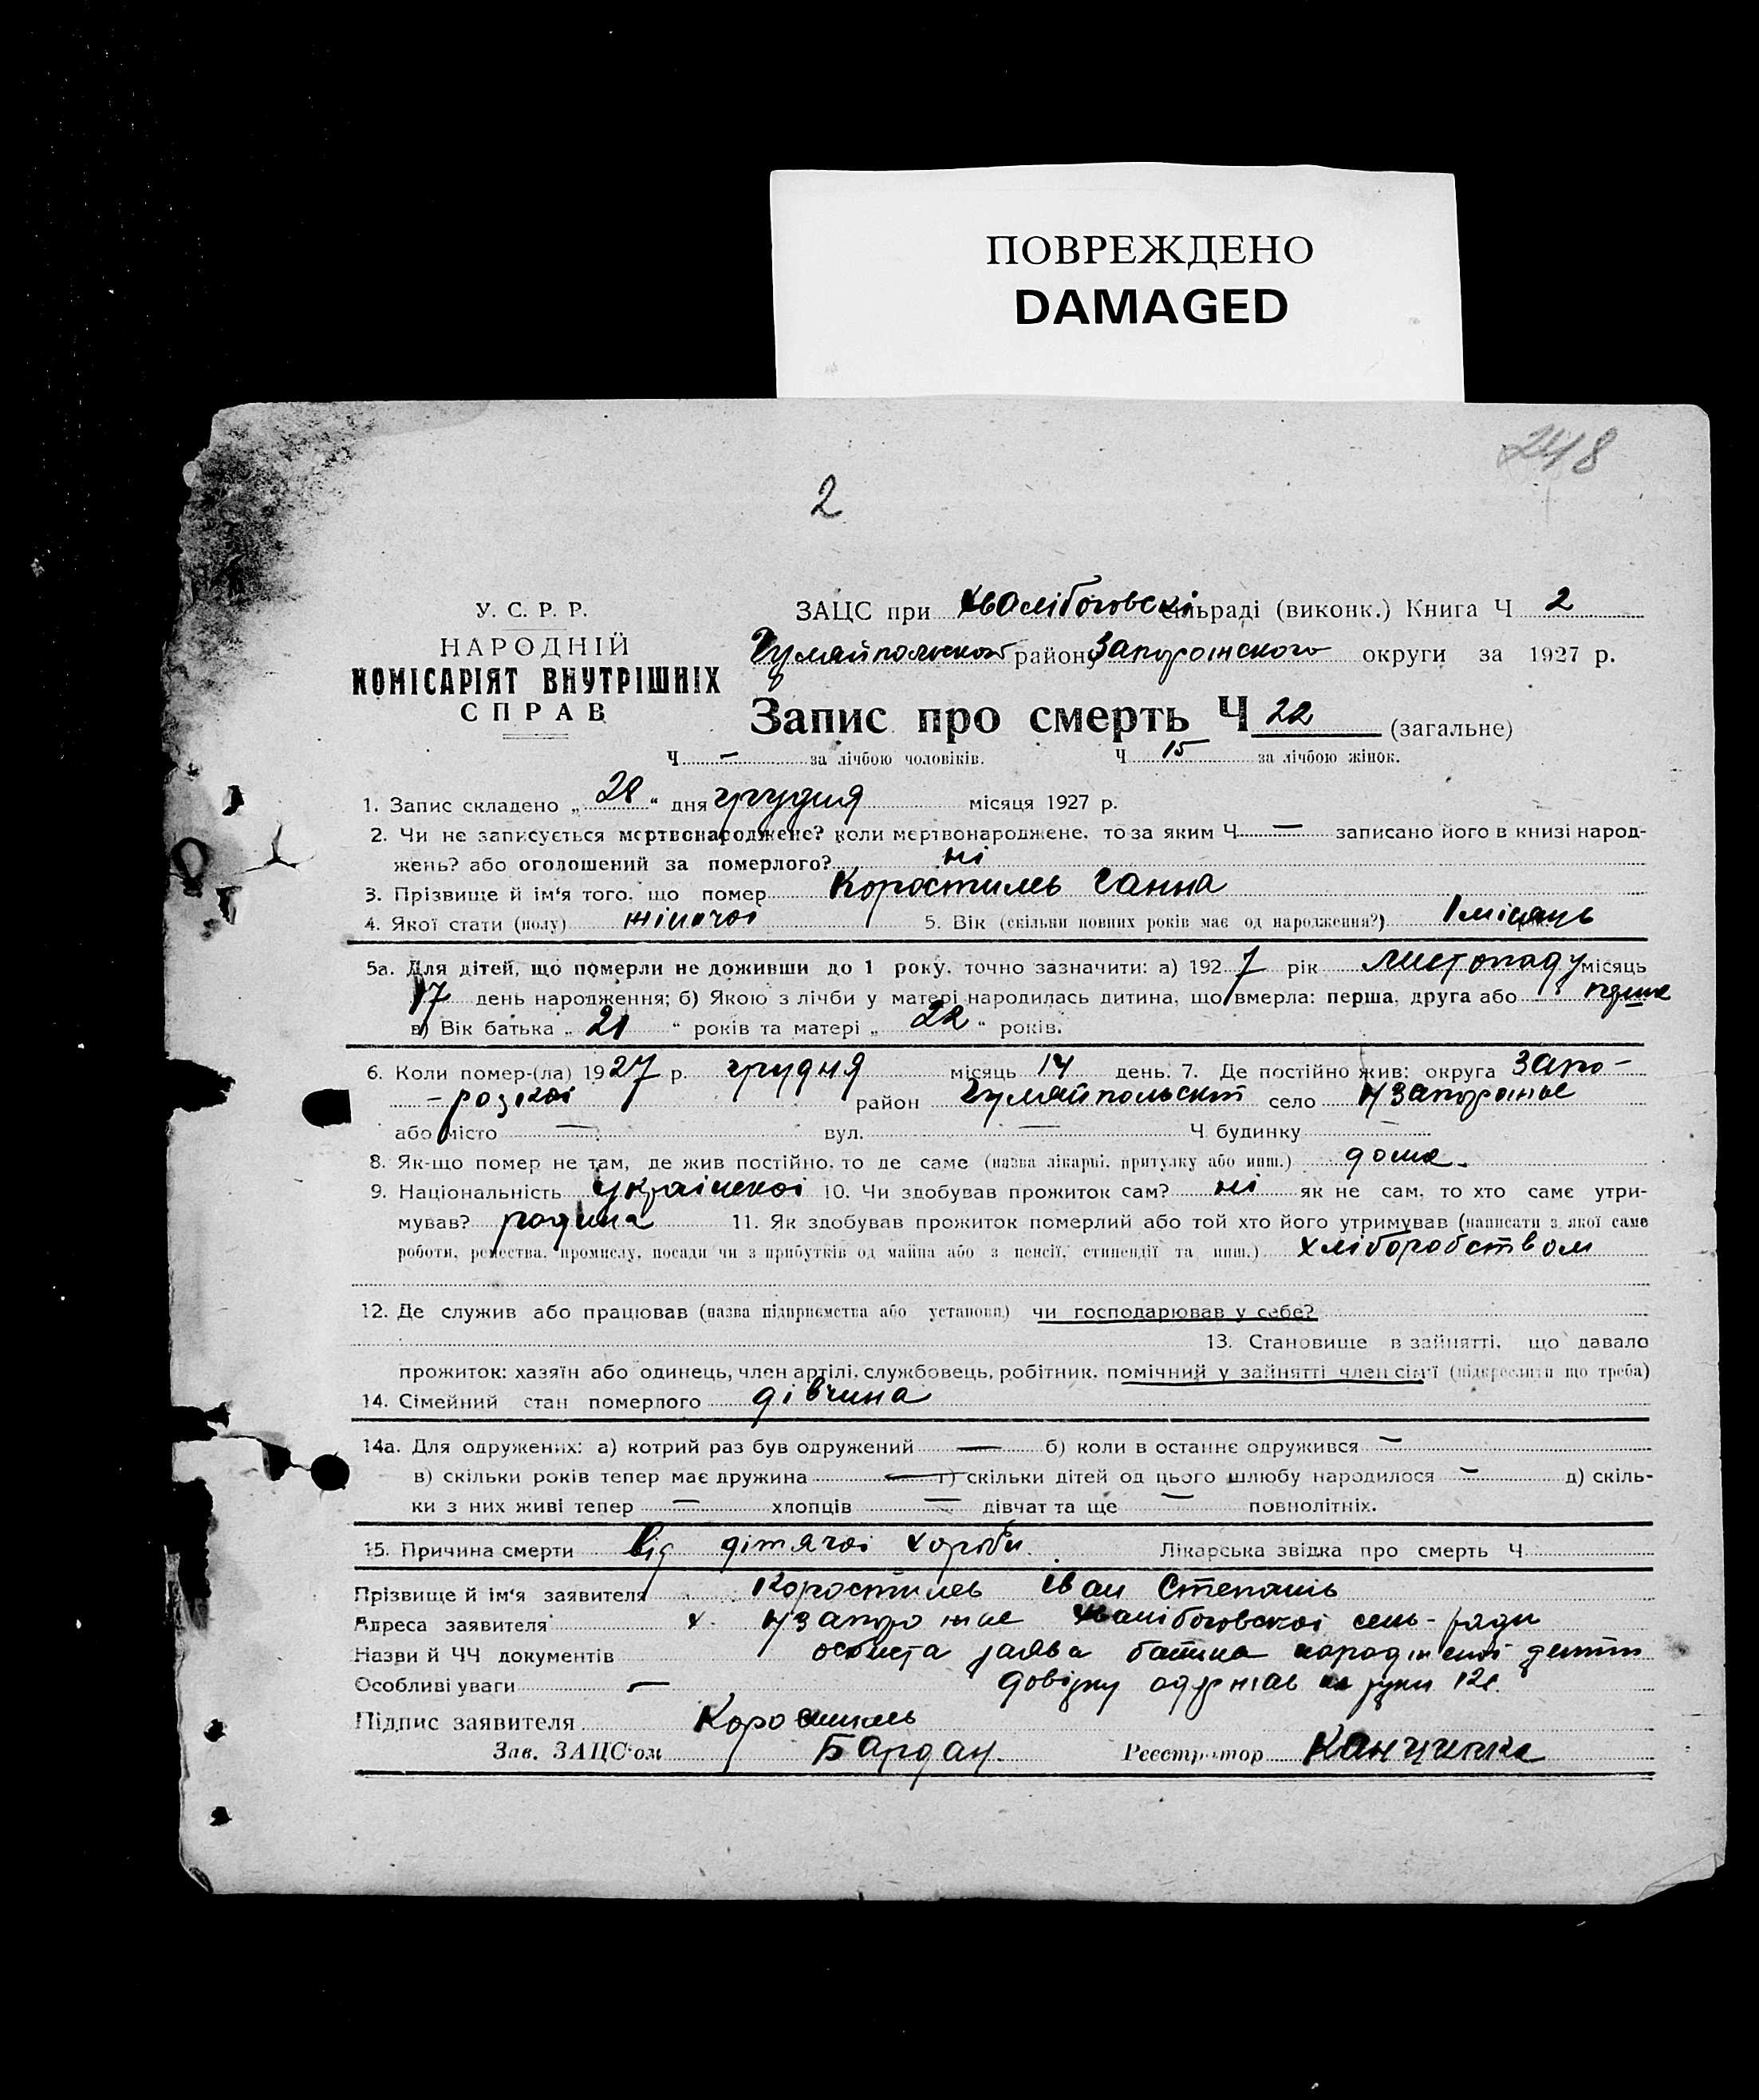 ПОВРЕЖДЕНО
DAMAGED
248
2
У. С. Р. Р.
НАРОДНІЙ
КОМІСАРІЯТ ВНУТРІШНІХ
СПРАВ
ЗАЦС при Хвалібоговскі сільраді (виконк.) Книга Ч 2
Гуляйпольского район Запорожского округи за 1927 р.
Запис про смерть Ч 22 (загальне)
Ч — за лічбою чоловіків. Ч 15 за лічбою жінок.
1. Запис складено „ 28 “ дня грудня місяця 1927 р.
2. Чи не записується мертвонароджене? коли мертвонароджене, то за яким Ч — записано його в книзі народ-
жень? або оголошений за померлого? ні
3. Прізвище й ім‘я того, що помер Коростиль Ганна
4. Якої стати (полу) жіночоі 5. Вік (скільки повних років має од народження?) 1 місяць
5а. Для дітей, що померли не доживши до 1 року, точно зазначити: а) 192 7 рік листопаду місяць
17 день народження; б) Якою з лічби у матері народилась дитина, що вмерла: перша, друга або перша
в) Вік батька „ 21 “ років та матері „ 22 “ років.
6. Коли помер-(ла) 1927 р. грудня місяць 14 день. 7. Де постійно жив: округа Запо-
район село
або місто — вул. — Ч будинку —
8. Як-що помер не там, де жив постійно, то де саме (назва лікарні, притулку або инш.) дома.
9. Національність украінскоі 10. Чи здобував прожиток сам? ні як не сам, то хто саме утри-
мував? родина 11. Як здобував прожиток померлий або той хто його утримував (написати з якої саме
роботи, ремества, промислу, посади чи з прибутків од майна або з пенсії, стипендії та инш.) хліборобством
12. Де служив або працював (назва підприємства або установи) чи господарював у себе?
13. Становище в зайнятті, що давало
прожиток: хазяїн або одинець, член артілі, службовець, робітник, помічний у зайнятті член сім‘ї (підкреслити що треба)
14. Сімейний стан померлого дівчина
14а. Для одружених: а) котрий раз був одружений — б) коли в останнє одружився —
в) скільки років тепер має дружина — г) скільки дітей од цього шлюбу народилося — д) скіль-
ки з них живі тепер — хлопців — дівчат та ще — повнолітніх.
15. Причина смерти Від дітячоі хороби. Лікарська звідка про смерть Ч
Прізвище й ім‘я заявителя Коростилев Іван Степанів
Адреса заявителя х. Хвалібоговскоі сель-ради
Назви й ЧЧ документів особиста заява батька
Особливі уваги — довідку одержав на руки
Підпис заявителя Коростиль
Зав. ЗАЦС‘ом Бардан Реєстратор